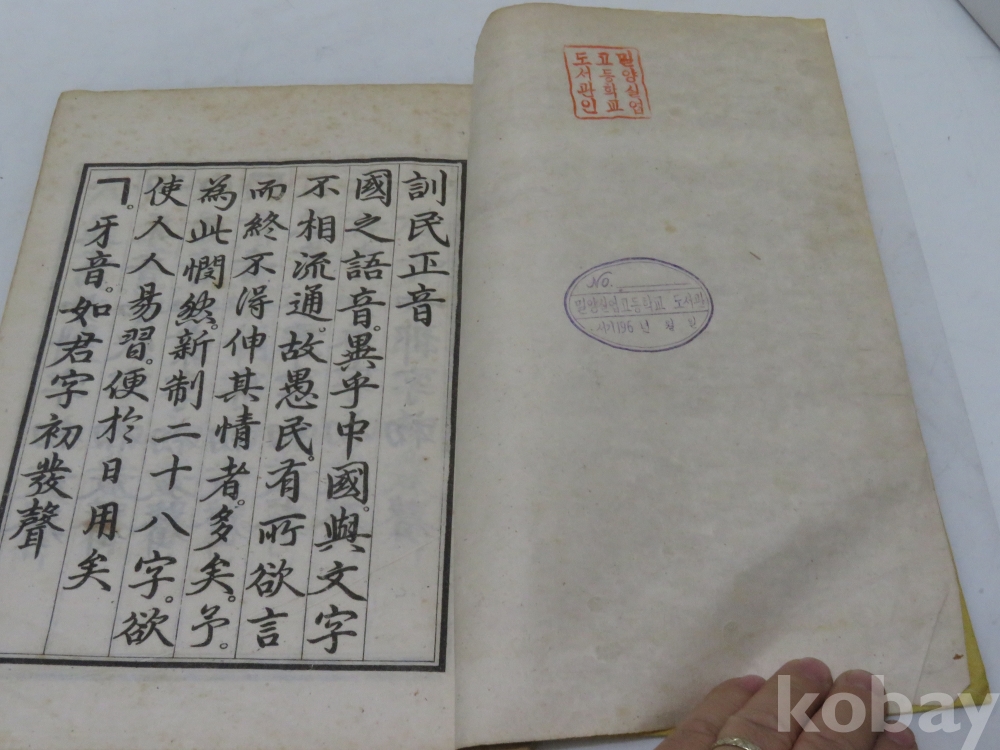 밀양실업
고등학교
도서관인
NO.
밀양실업고등학교 도서관
서기196 년 월 일
訓民正音
國之語音。異乎中國。與文字
不相流通。故愚民。有所欲言
而終不得伸其情者。多矣。予。
為此憫然。新制二十八字。欲
使人人易習。便於日用矣
ㄱ。牙音。如君字初發聲
kobay